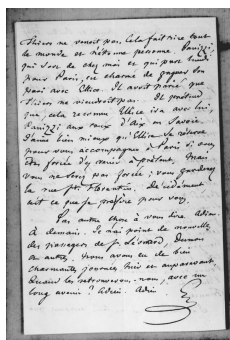 Thiers ne venoit pas. Cela fait rire tout
le monde et n'étonne personne. Panizzi
qui sort de chez moi et qui part lundi
pour Paris, est charmé de gagner son
pari avec Ellice. Il avoit parié que
Thiers ne viendroit pas. Il prétend
que, cela reconnu Ellice ira avec lui,
Panizzi aux eaux d'Aix en Savoie.
J'aime bien mieux qu'Ellice se réserve
pour vous accompagner à Paris si vous
êtes forcée d'y revenir à présent, mais
vous ne serez pas forcée ; vous garderez
la rue St. Florentin. Décidément
c'est ce que je préfère pour vous.
Pas autre chose à vous dire. Adieu
à demain. Je n'ai point de nouvelle
des passages de St Léonard, Demon
ou autres. Nous avons eu de bien
charmantes journées hier et auparavant.
Quand les retrouverons-nous, avec un
long avenir ? Adieu. Adieu
G